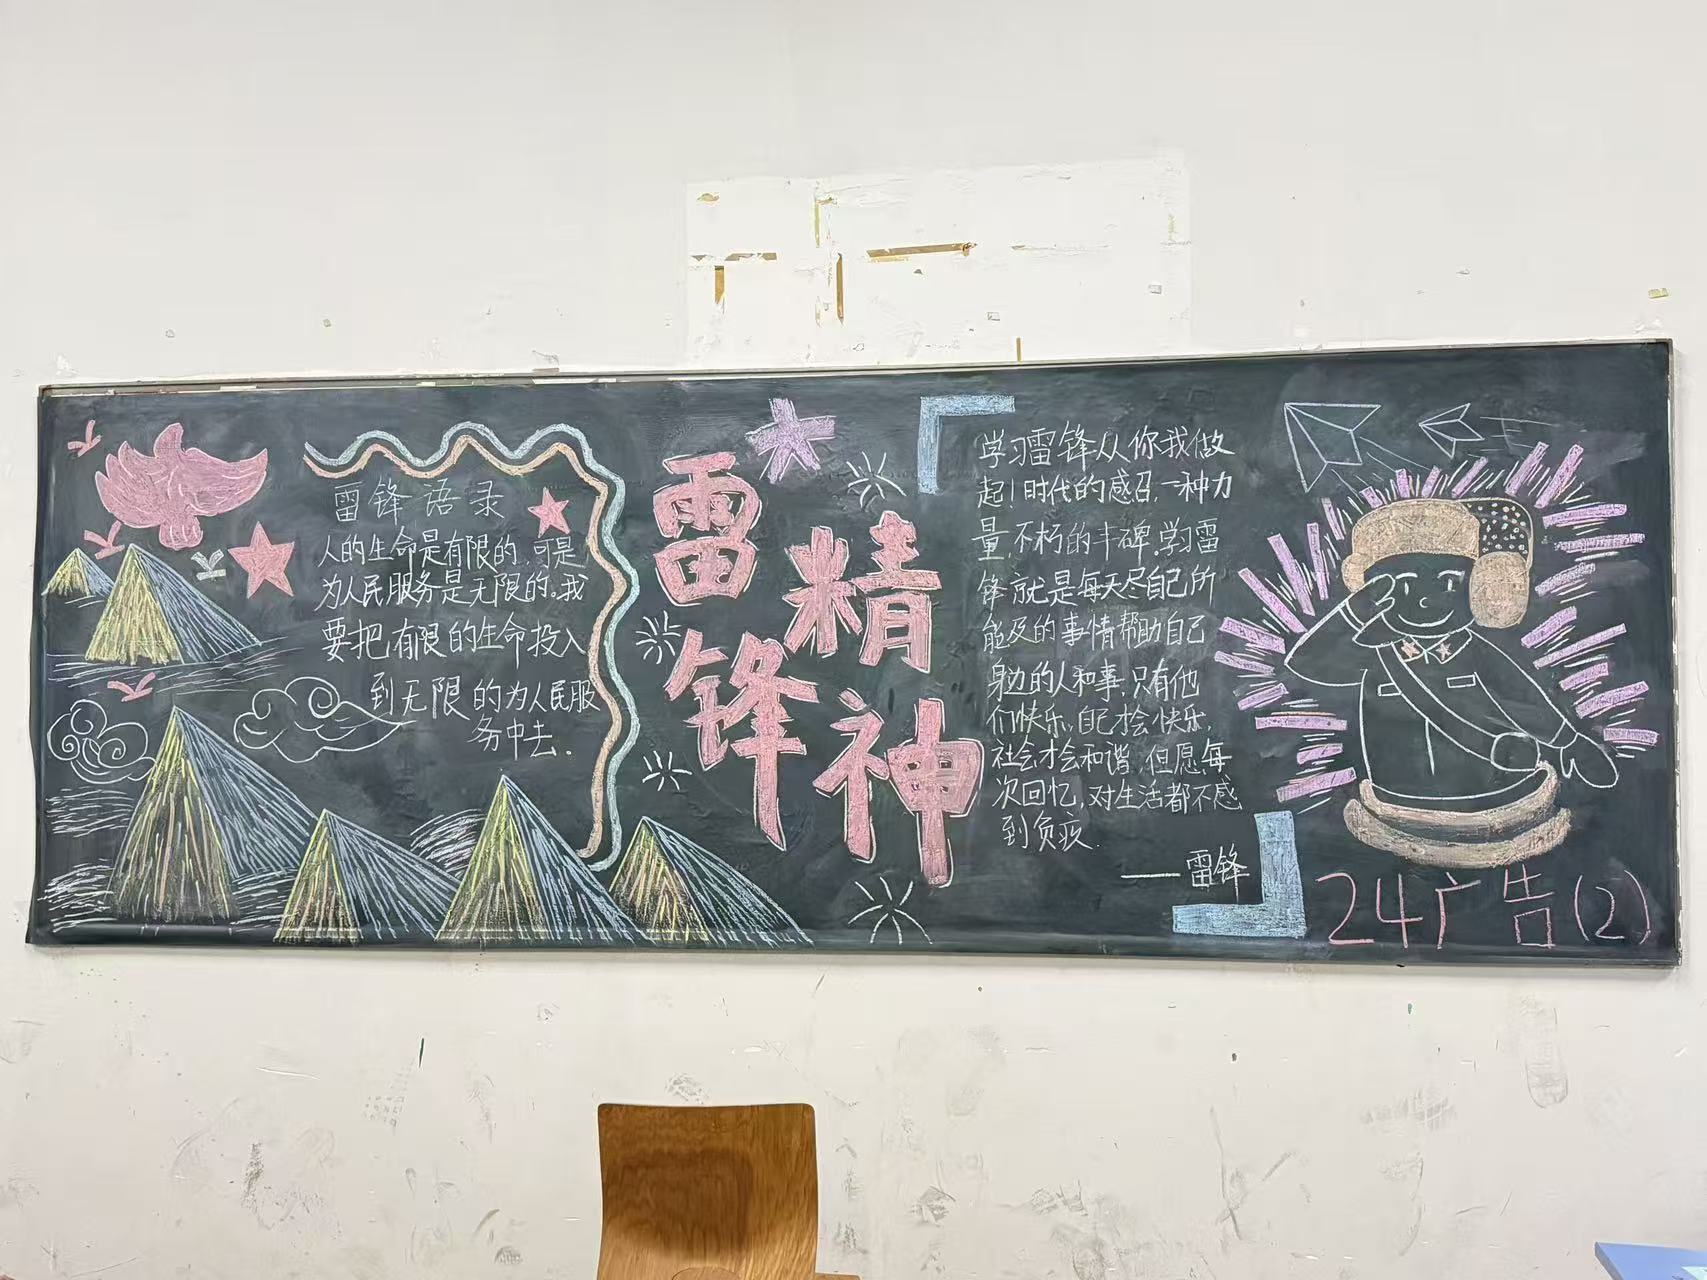 雷锋语录
人的生命是有限的,可是
为人民服务是无限的。我
要把有限的生命投入
到无限的为人民服
务中去.
雷锋
精神
学习雷锋从你我做
起!时代的感召,一种力
量,不朽的丰碑.学习雷
锋就是每天尽自己所
能及的事情帮助自己
身边的人和事,只有他
们快乐,自己才会快乐,
社会才会和谐.但愿,每
次回忆,对生活都不感
到负疚.
——雷锋
24广告(2)